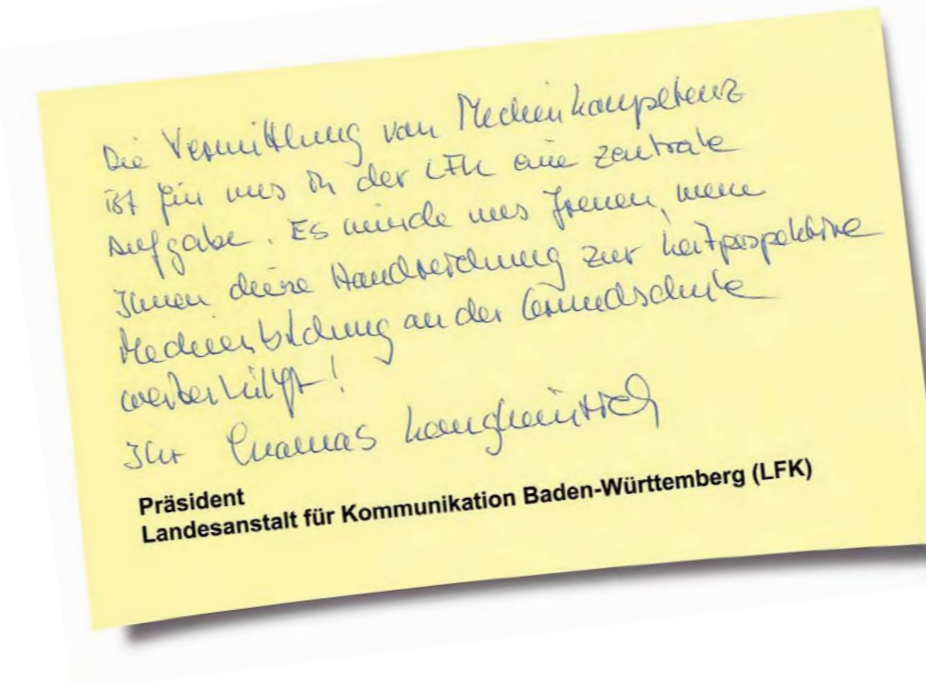 Die Vermittlung von Medienkompetenz
ist für uns in der LFK eine zentrale
Aufgabe. Es würde uns freuen, wenn
Ihnen diese Handreichung zur Leitperspektive
Medienbildung an der Grundschule
weiterhilft!
Ihr Thomas Langheinrich
Präsident
Landesanstalt für Kommunikation Baden-Württemberg (LFK)